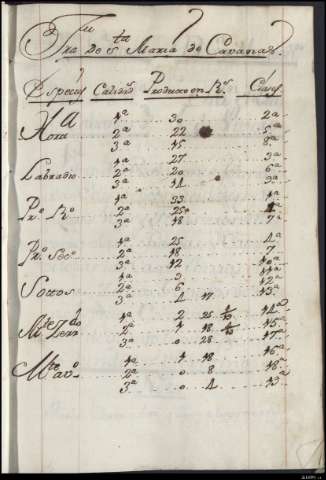 Fra. De Sta. Maria de Cavanas.
Especies Calidad. Producto en Rs. Clases
Hora 1a 30 2a
2a 22 5a
3a 15 8a
Labradio 1a 27 3a
2a 20 6a
3a 14 9a
Pro. Ro. 1a 33 1a
2a 25 4
3a 18 7a
Pro. Seco. 1a 25 4a
2a 18 7
3a 12 10a
Sotos 1a 9 11a
2a 6 12a
3a 4 17 13a
1a 2 25 1/10 14a
2a 1 18 1/10 15a
3a 0 28 17a
1a 1 18 16a
2a 0 8 18a
3a 0 4